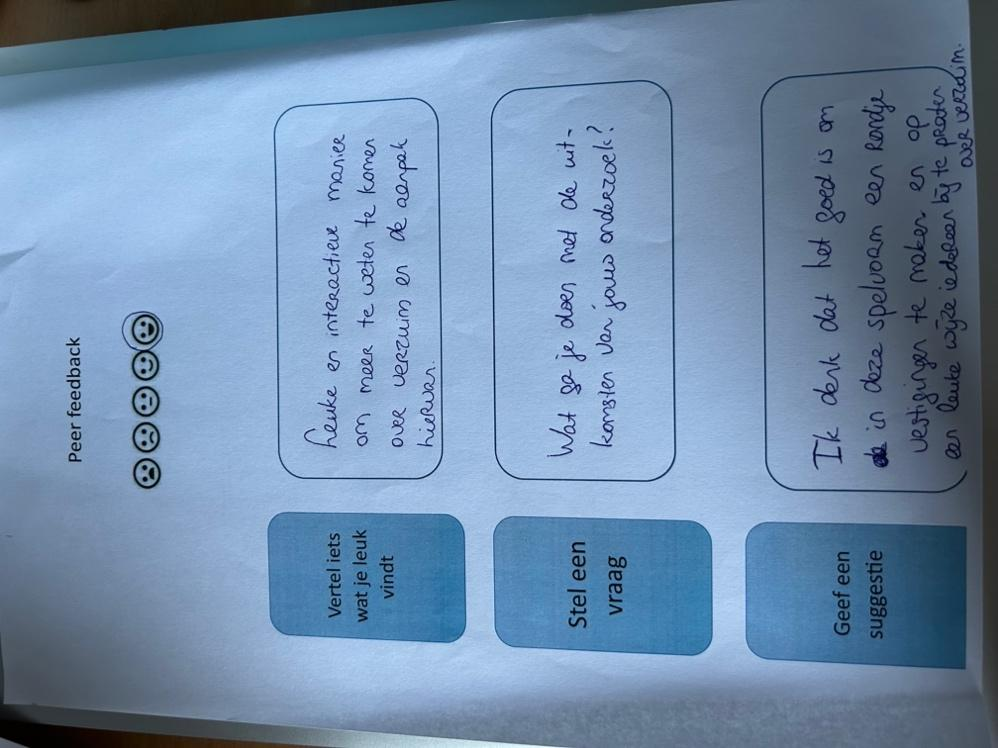 Peer feedback
Vertel iets
wat je leuk
vindt
Leuke en interactieve manier
om meer te weten te komen
over verzuim en de aanpak
hiervan.
Stel een
vraag
Wat ga je doen met de uit-
komsten van jouw onderzoek?
Geef een
suggestie
Ik denk dat het goed is om
in deze spelvorm een rondje
vestigingen te maken en op
een leuke wijze iedereen bij te praten
over verzuim.